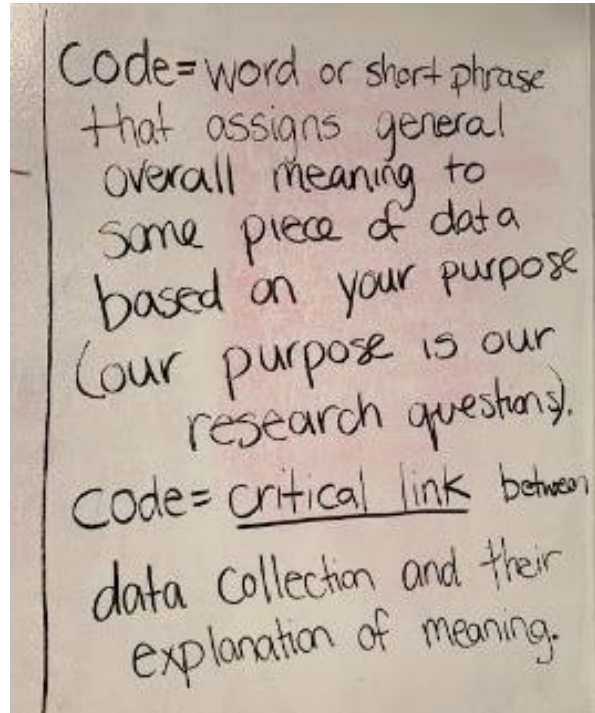 Code= word or short phrase
that assigns general
overall meaning to
some piece of data
based on your purpose
(our purpose is our
research questions).
Code= critical link between
data collection and their
explanation of meaning.